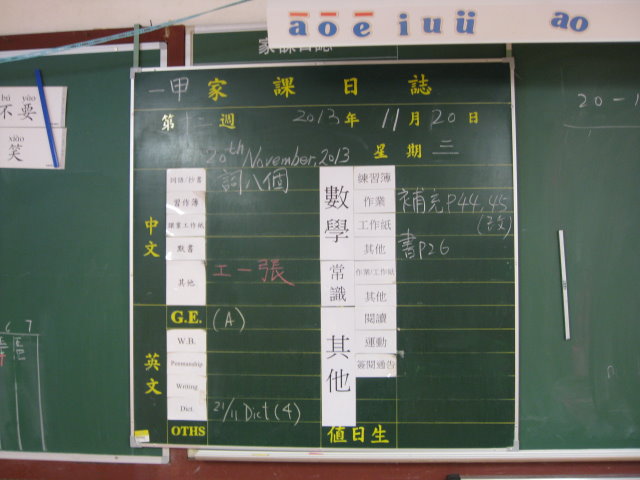 ā ō ē i u ü
ao
家課日誌
bú yào
不要
xiào
笑
20-1
一甲 家課日誌
第十二週 2013年 11月20日
20th November, 2013 星期三
中文
詞語/抄書 詞八個
習作簿
課業工作紙
默書
其他 工一張
英文
G.E. (A)
W.B.
Penmanship
Writing
Dict. 21/11 Dict (4)
OTHS
數學
練習簿
作業 補充P44,45
工作紙 (改)
其他 書P26
常識
作業/工作紙
其他
其他
閱讀
運動
簽閱通告
值日生
6 7